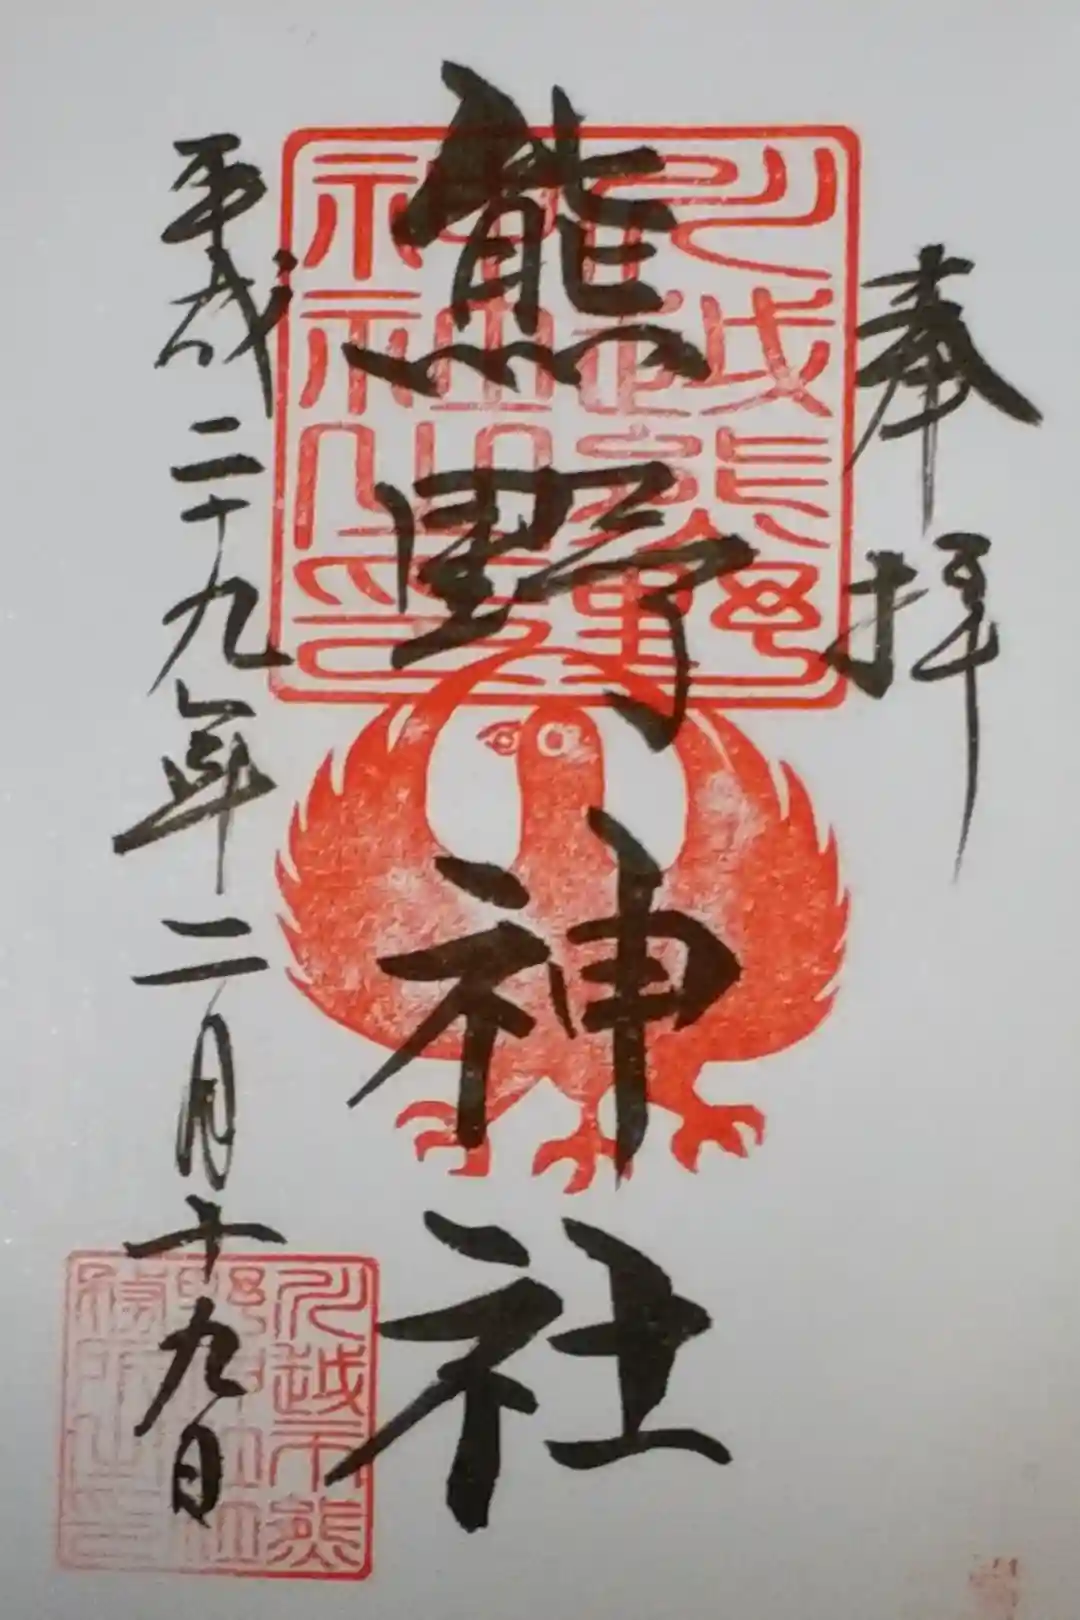 奉拝
川越熊野神社之印
熊野神社
平成二十九年二月十九日
川越市熊野神社務所之印